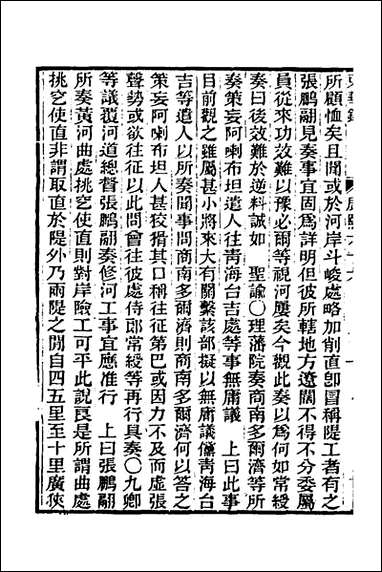 所顧恤矣且聞或於河岸斗峻處略加削直卽圖稱隄工者有之
張鵬翮見奏事宜固爲詳明但彼所轄地方遼闊不得不分委屬
員從來功效難以豫必爾等視河屢矣今觀此奏以爲何如常綬
奏曰後效難於逆料誠如　聖諭〇理藩院奏商南多爾濟等所
奏策妄阿喇布坦遣人往靑海台吉處等事無庸議　上曰此事
目前觀之雖屬甚小將來大有關繫該部擬以無庸議儻靑海台
吉等遣人以所奏聞事問商南多爾濟則商南多爾濟何以答之
策妄阿喇布坦人甚狡猾其口稱往征第巴或因力不及而虛張
聲勢或欲往征以此問曾往彼處侍郞常綬等再行具奏〇九卿
等議覆河道總督張鵬翮奏修河工事宜應准行　上曰張鵬翮
所奏黃河曲處挑穵使直則對岸險工可平此說良是所謂曲處
挑穵使直非謂取直於隄外乃兩隄之閒自四五里至十里廣狹